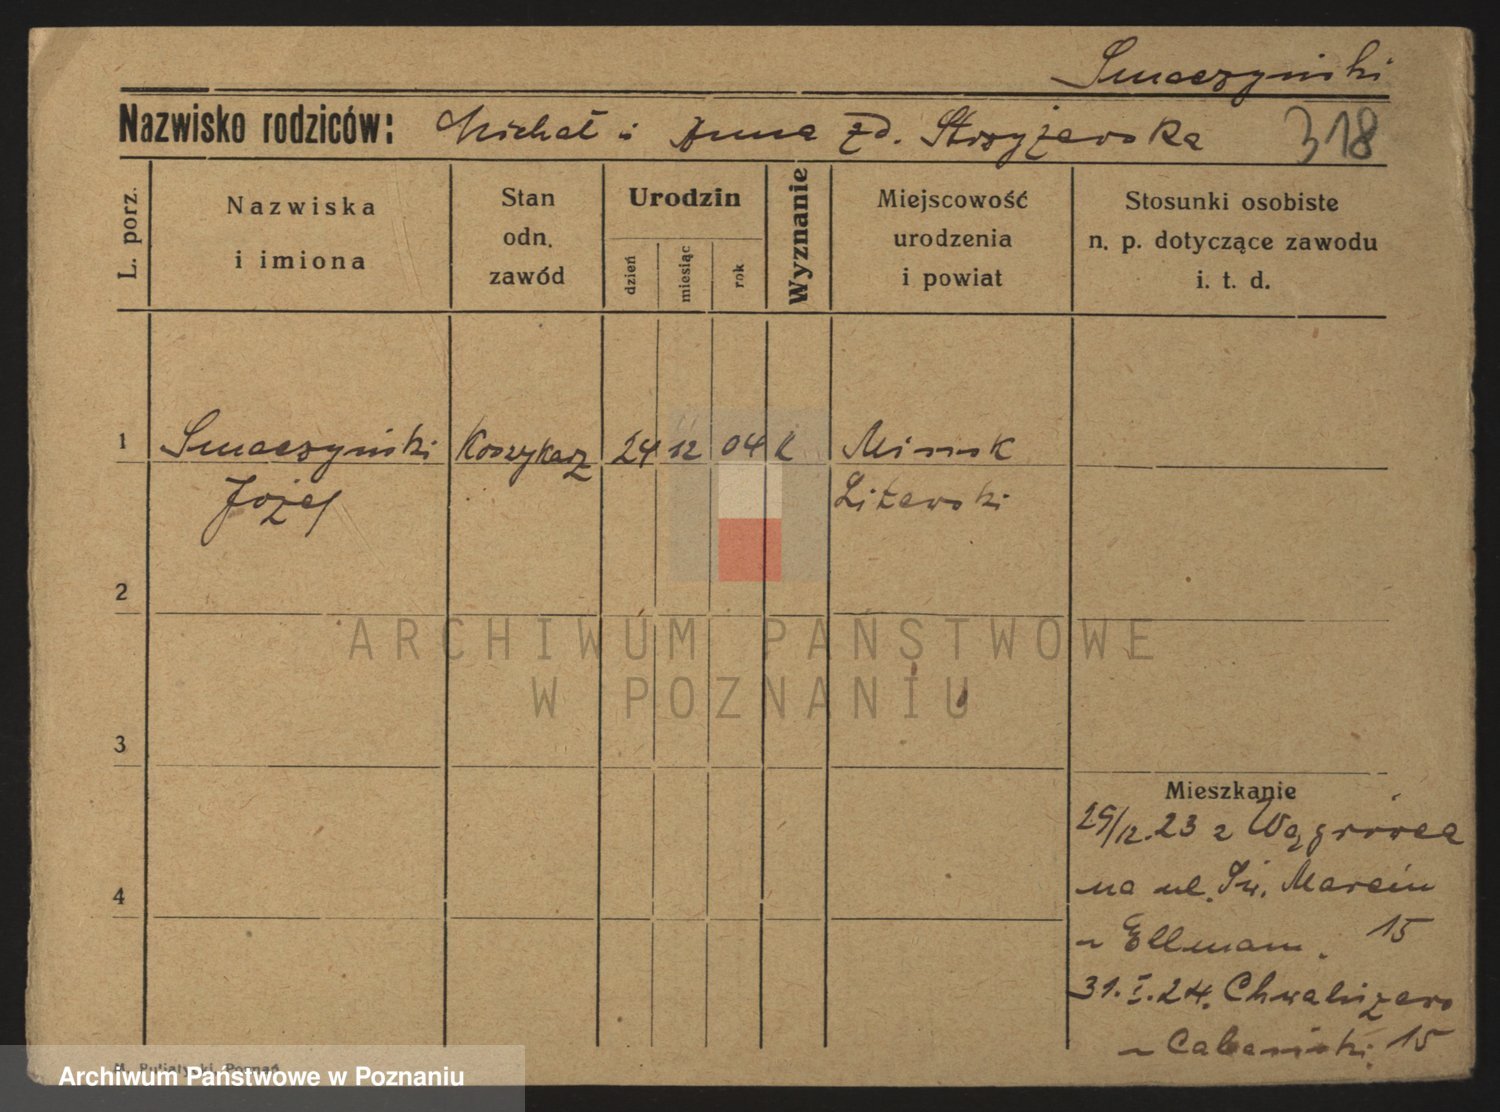 Smaczyński
Nazwisko rodziców: Michał i Anna zd. Strzyżewska 318
L. porz.
Nazwiska
i imiona
Stan
odn.
zawód
Urodzin
dzień
miesiąc
rok
Wyznanie
Miejscowość
urodzenia
i powiat
Stosunki osobiste
n. p. dotyczące zawodu
i. t. d.
1 Smaczyński Koszykarz 24 12 04 k Minsk
Józef Litewski
2
ARCHIWUM PAŃSTWOWE
W POZNANIU
3
Mieszkanie
29/12.23 z Wągrówca
na ul. Św. Marcin
15
u Ellmann.
4
31.I.24. Chwaliszewo
u Cabański 15
Poznań
Archiwum Państwowe w Poznaniu